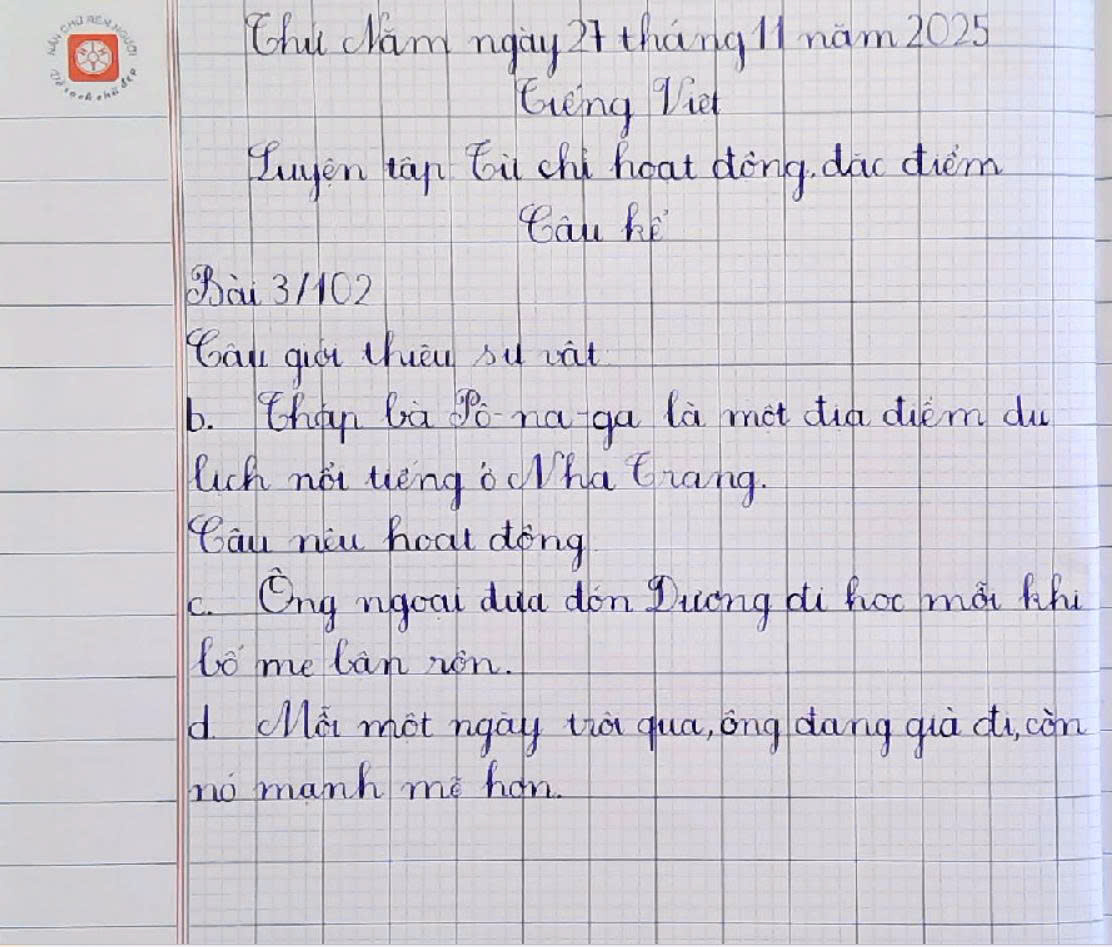 NẮN CHỮ RÈN NGƯỜI
Vở sạch chữ đẹp
Thứ Năm ngày 27 tháng 11 năm 2025
Tiếng Việt
Luyện tập Từ chỉ hoạt động, đặc điểm
Câu kể
Bài 3/102
Câu giới thiệu sự vật
b. Tháp bà Pô-na-ga là một địa điểm du
lịch nổi tiếng ở Nha Trang.
Câu nêu hoạt động
c. Ông ngoại đưa đón Dương đi học mỗi khi
bố mẹ bận rộn.
d. Mỗi một ngày trôi qua, ông đang già đi, còn
nó mạnh mẽ hơn.